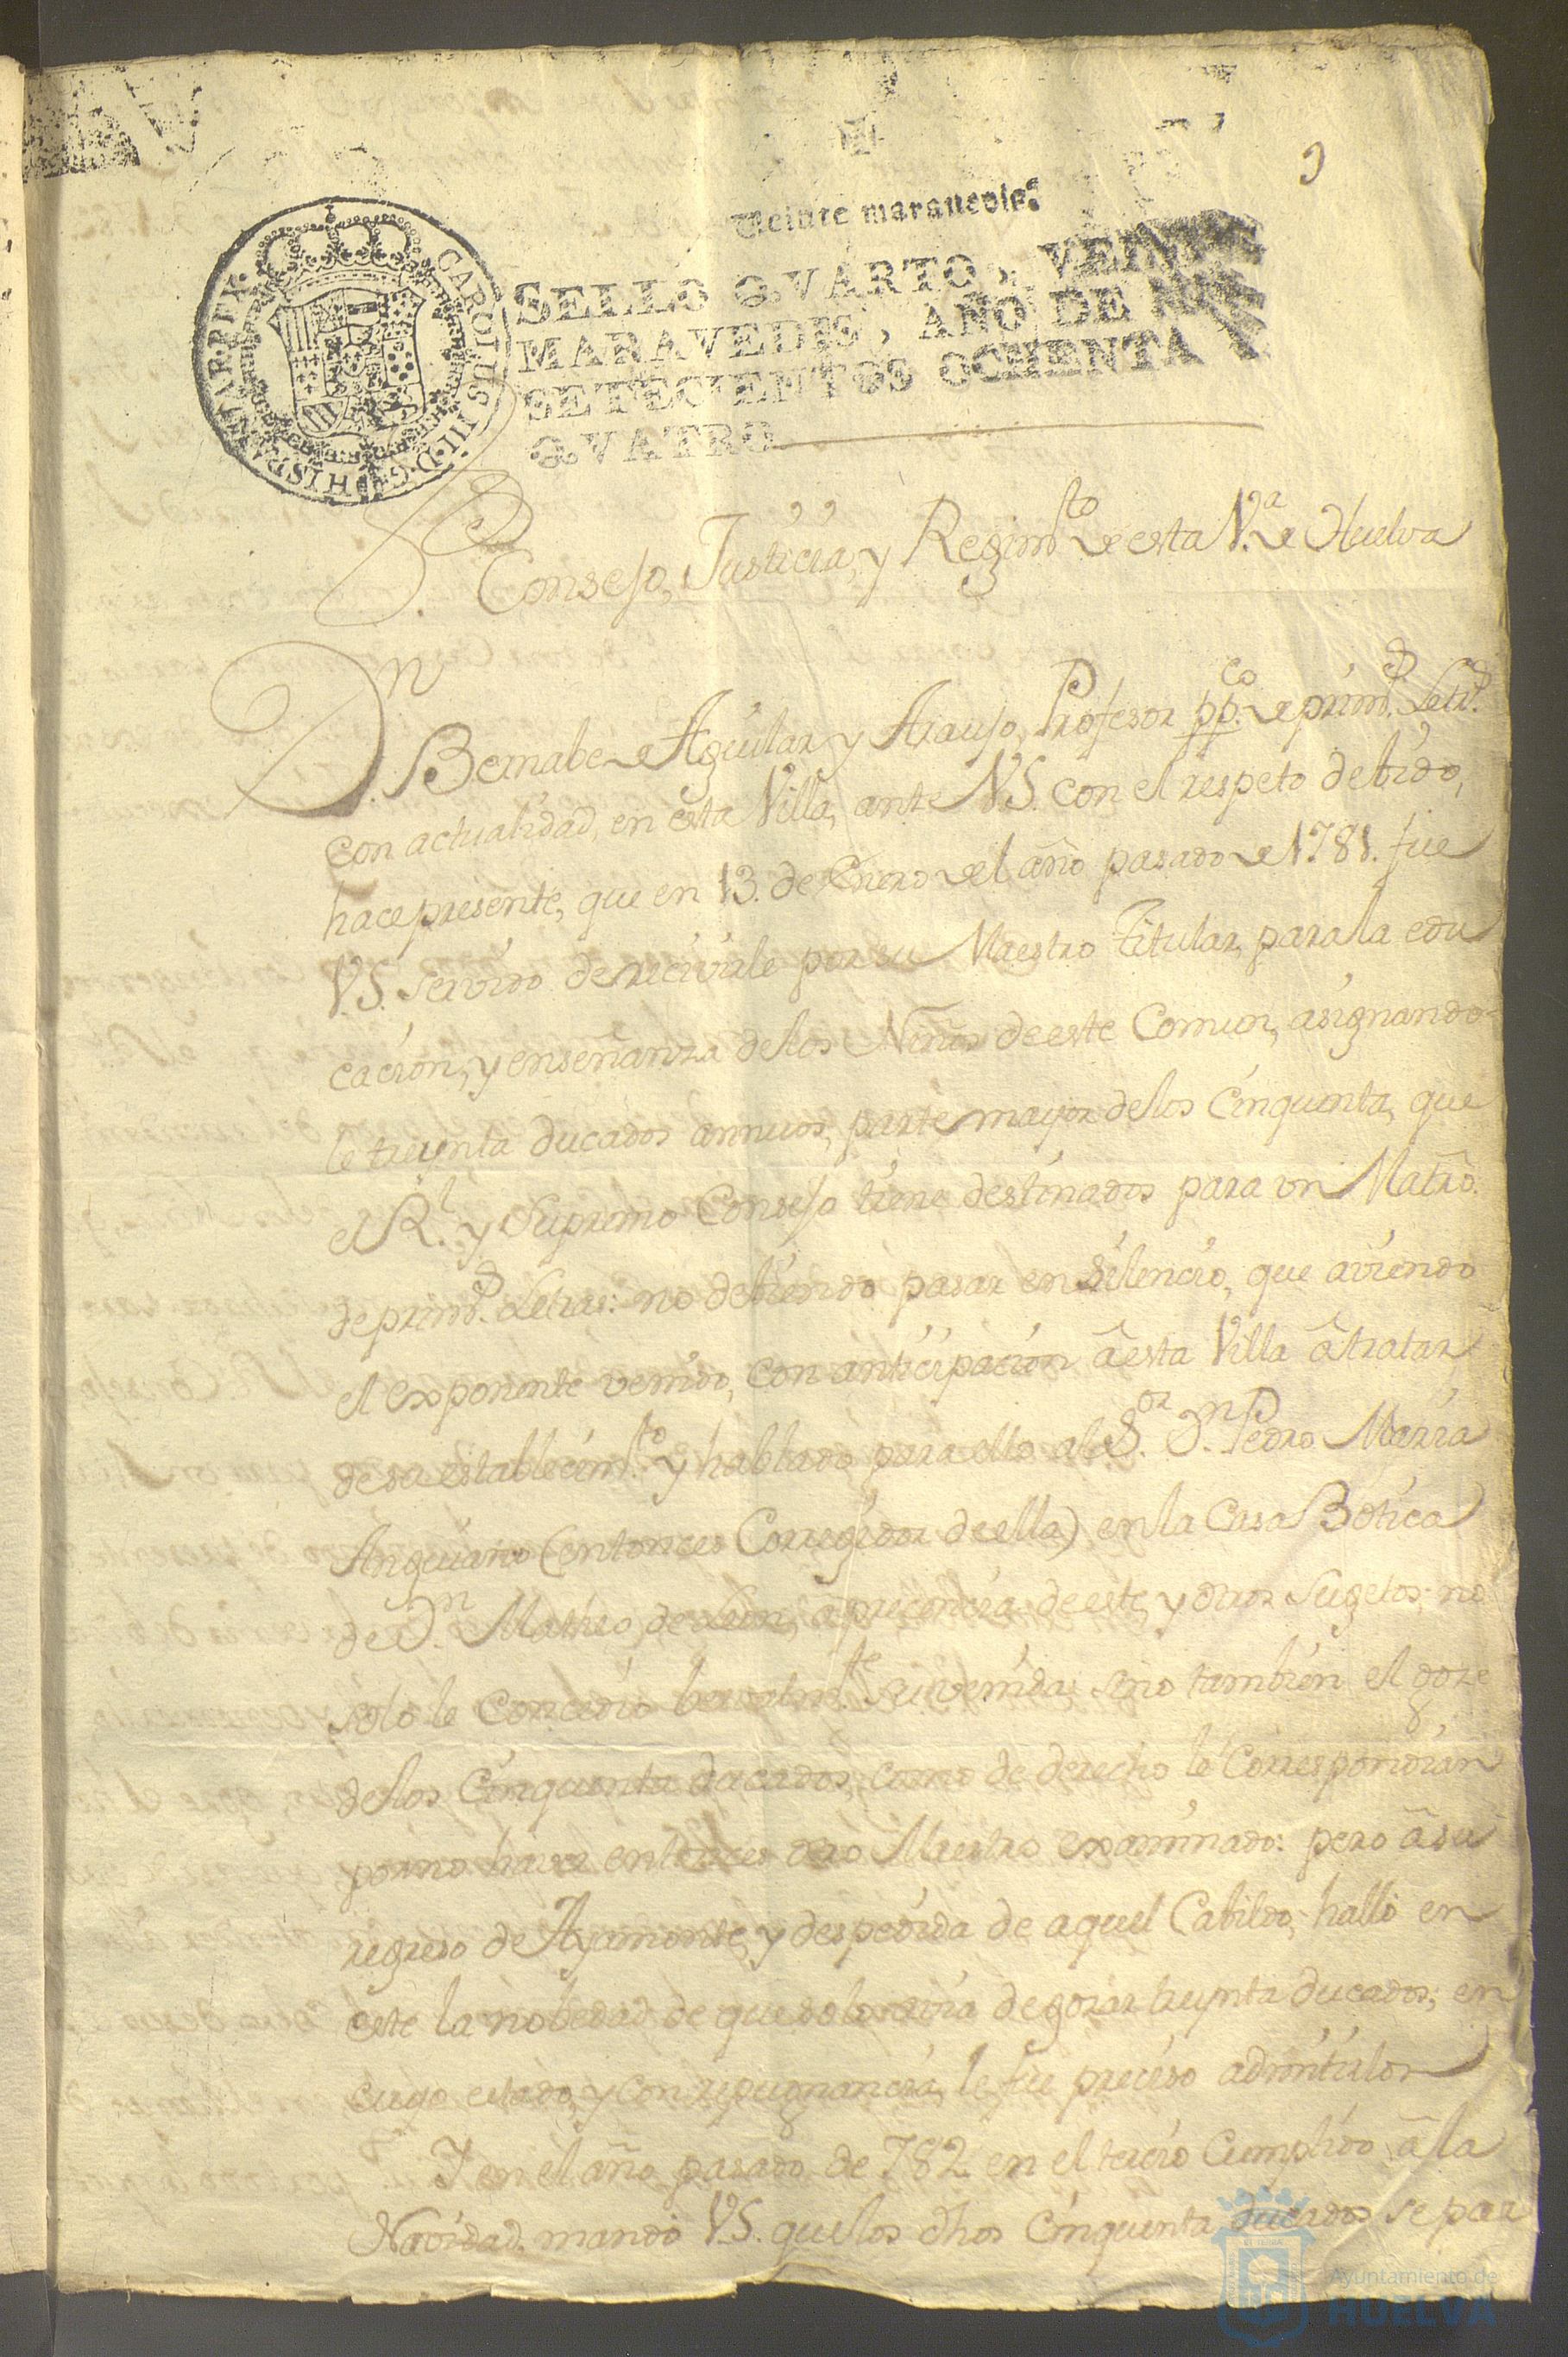 9
Veinte maravedis.
SELLO QVARTO, VEINTE
MARAVEDIS, AÑO DE MIL
SETECIENTOS OCHENTA Y
QVATRO.
CAROLUS III D.G. HISPANIAR. REX.
Consejo, Justicia, y Regimto de esta Va. de Huelva
Dn. Bernabe de Aguilar y Araujo, Profesor ppco. de prims. Letrs.
con actualidad, en esta Villa, ante VS. con el respeto debido,
hace presente, que en 13. de Enero del año pasado de 1781. fue
V.S. servido de recivirle por su Maestro Titular, para la edu
cacion, y enseñanza de los Niños de este Comun, asignando-
le treynta ducados annuos, parte mayor de los Cinquenta, que
el Rl. y Supremo Consejo tiene destinados para un Matro.
de prims. Letras: no debiendo pasar en silencio, que aviendo
el exponente venido, con anticipación â esta Villa â tratar
de su establecimto. y hablado para ello al Sor. Dn. Pedro Maria
Anguiano (entonces Corregidor de ella) en la Casa Botica
de Dn. Matheo de Leon, a precencia de este, y otros Sugetos; no
solo le concedio su venida, sino tambien el goze
de los Cinquenta ducados, como de derecho le correspondian
por no haver entonces otro Maestro examinado: pero â su
regreso de Ayamonte, y despedida de aquel Cabildo, halló en
este la nobedad de que solo havia de gozar treynta ducados; en
cuyo estado, y con repugnancia, le fue preciso admitirlos
Y en el año pasado de 782. en el tercio Cumplido â la
Navidad, mandó V.S. que los dhos Cinquenta ducados se par
Ayuntamiento de
HUELVA